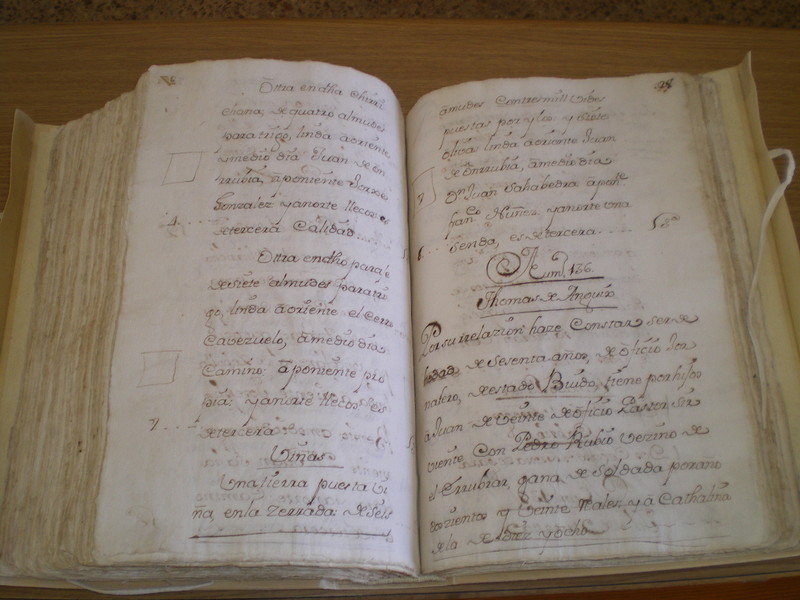 Ottra en dha Chirri
chana, de quatro almudes
para trigo, linda a oriente
a medio dia Juan de En
rrubia, a poniente Jorxe
Gonzalez y a norte llecos: es
4.... de tercera Calidad....
Ottra en dho paraje
de siete almudes para tri
go, linda a oriente el Cerro
Cavezuelo, a medio dia
Camino: a poniente pro
pia: y a norte llecos es
7.... de tercera
Viñas
Una tierra puesta Vi
ña, en la Zerrada: de seis
amudes Contresmill vides
puestas por yloe y siete
olivas linda a oriente Juan
de Enrrubia, a medio dia
Dn. Juan Sahabedra a poniente
Nuñez, y a norte una
6... Senda, es de tercera....
Num. 136.
Thomas de Anguix
Por su rrelazion haze Constar ser de
hedad de sesenta años, de oficio Jor
nalero, de estado Biudo, tiene por hijos
a Juan de Veinte de oficio Pastor Sir
viente Con Pedro Rubio vezino de
el Errubiar, gana de Soldada por año
dozientos y Veinte Rales, y a Cathalina
de la de diez y ocho